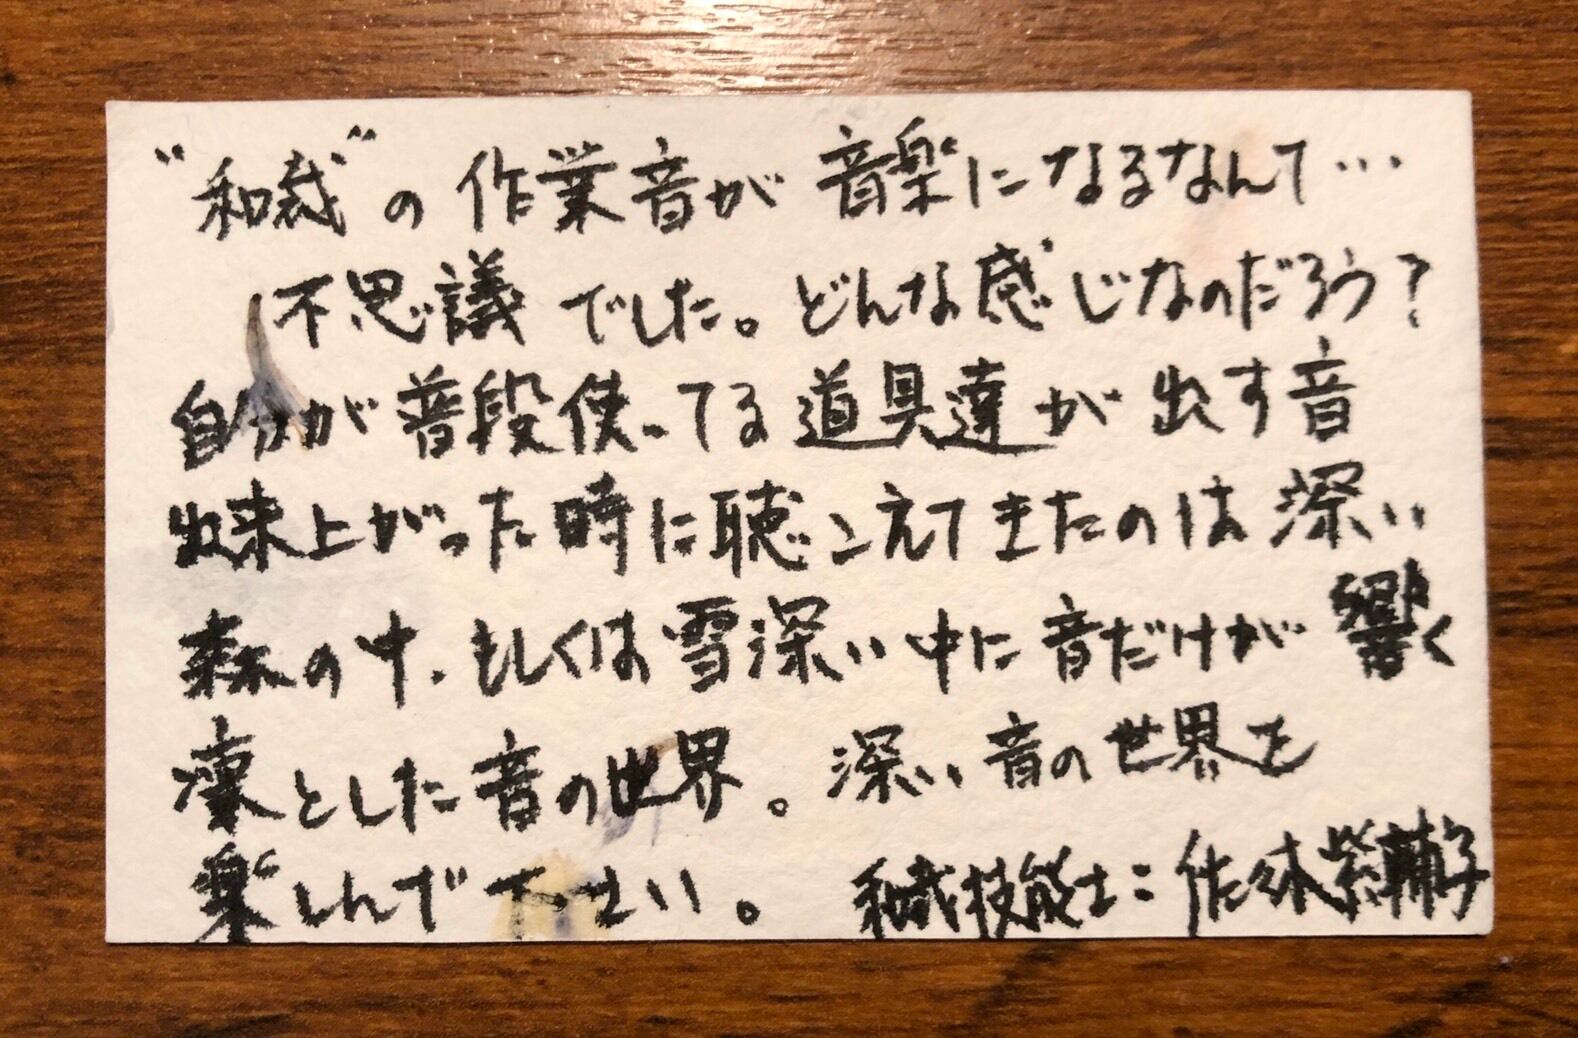 "和裁"の作業音が音楽になるなんて…
不思議でした。どんな感じなのだろう?
自分が普段使ってる道具達が出す音
出来上がった時に聴こえてきたのは深い
森の中.もしくは雪深い中に音だけが響く
凜とした音の世界。深い音の世界を
楽しんで下さい。 和裁技能士:佐々木紫